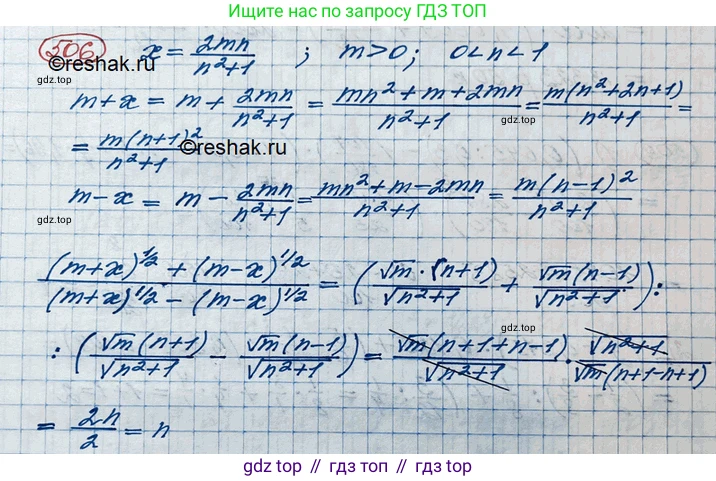 Ищите нас по запросу ГДЗ ТОП
506. x = 2mn/(n²+1) ; m>0; 0<n<1
©reshak.ru
m+x = m + 2mn/(n²+1) = (mn²+m+2mn)/(n²+1) = m(n²+2n+1)/(n²+1) =
gdz.top
= m(n+1)²/(n²+1)
©reshak.ru
m-x = m - 2mn/(n²+1) = (mn²+m-2mn)/(n²+1) = m(n-1)²/(n²+1)
gdz.top
gdz.top
((m+x)^½ + (m-x)^½)/((m+x)^½ - (m-x)^½) = (√m·(n+1)/√(n²+1) + √m(n-1)/√(n²+1)):
gdz.top
: (√m(n+1)/√(n²+1) - √m(n-1)/√(n²+1)) = √m(n+1+n-1)/√(n²+1) · √(n²+1)/(√m(n+1-n+1))
= 2n/2 = n
gdz top // гдз топ // gdz.top